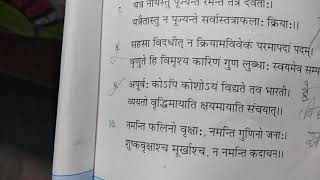 7. यत्र नार्यस्तु पूज्यन्ते रमन्ते तत्र देवताः।
यत्रैतास्तु न पूज्यन्ते सर्वास्तत्राफलाः क्रियाः।।
8. सहसा विदधीत न क्रियामविवेकः परमापदां पदम्।
वृणुते हि विमृश्य कारिणं गुण लुब्धाः स्वयमेव सम्प
9. अपूर्वः कोऽपि कोशोऽयं विद्यते तव भारती।
व्ययतो वृद्धिमायाति क्षयमायाति संचयात्।।
10. नमन्ति फलिनो वृक्षाः, नमन्ति गुणिनो जनाः।
शुष्कवृक्षाश्च मूर्खाश्च, न नमन्ति कदाचन।।